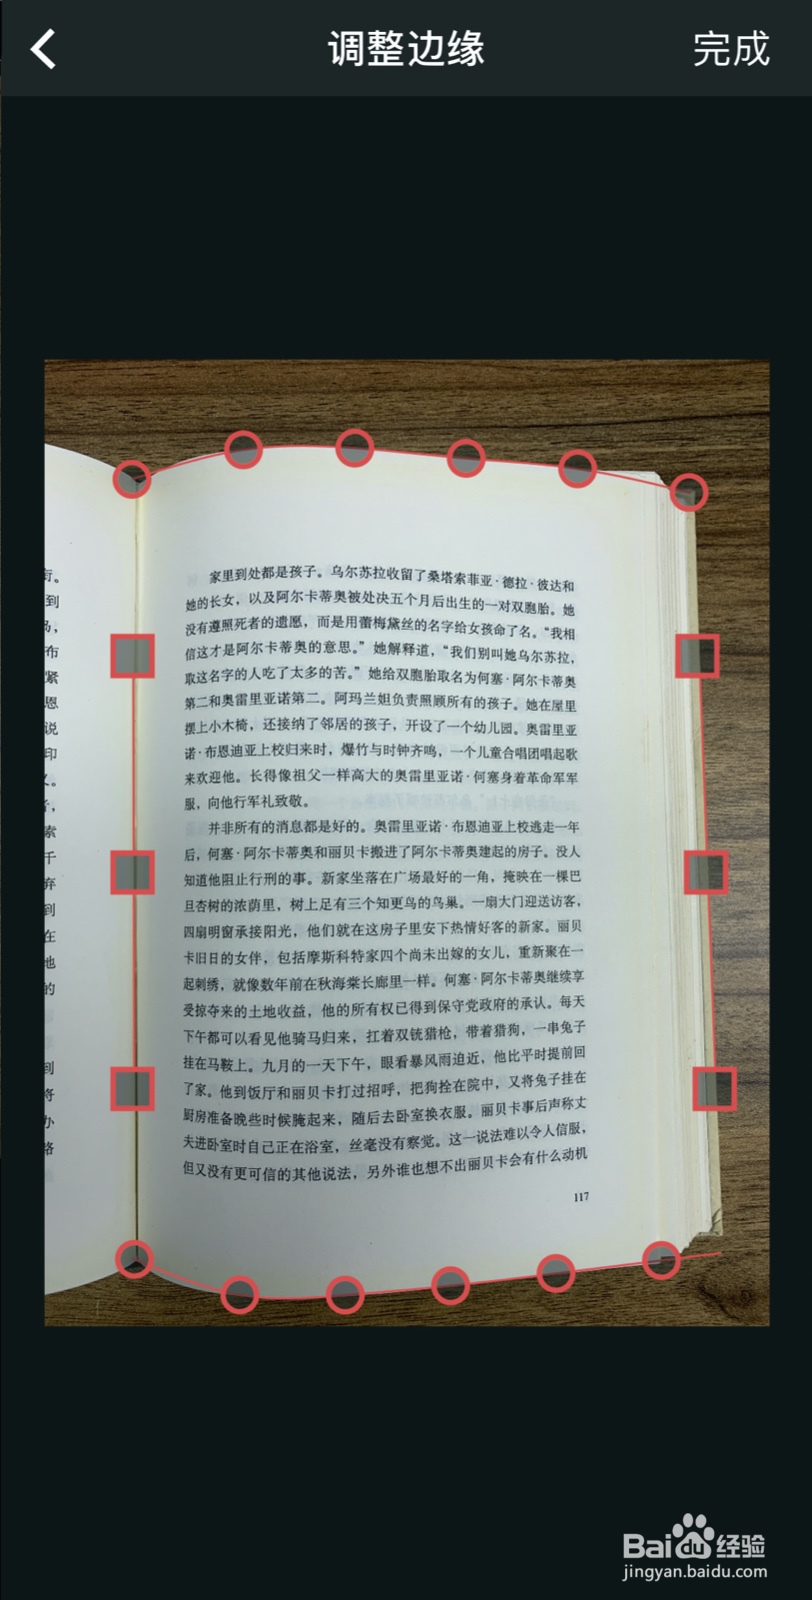 调整边缘
完成
衔。
到
布
紧
恩
说
印
索
千
弃
到
在
他
的
到
将
办
络
家里到处都是孩子。乌尔苏拉收留了桑塔索菲亚·德拉·彼达和
她的长女，以及阿尔卡蒂奥被处决五个月后出生的一对双胞胎。她
没有遵照死者的遗愿，而是用蕾梅黛丝的名字给女孩命了名。“我相
信这才是阿尔卡蒂奥的意思。”她解释道，“我们别叫她乌尔苏拉，
取这名字的人吃了太多的苦。”她给双胞胎取名为何塞·阿尔卡蒂奥
第二和奥雷里亚诺第二。阿玛兰妲负责照顾所有的孩子。她在屋里
摆上小木椅，还接纳了邻居的孩子，开设了一个幼儿园。奥雷里亚
诺·布恩迪亚上校归来时，爆竹与时钟齐鸣，一个儿童合唱团唱起歌
来欢迎他。长得像祖父一样高大的奥雷里亚诺·何塞身着革命军军
服，向他行军礼致敬。
并非所有的消息都是好的。奥雷里亚诺·布恩迪亚上校逃走一年
后，何塞·阿尔卡蒂奥和丽贝卡搬进了阿尔卡蒂奥建起的房子。没人
知道他阻止行刑的事。新家坐落在广场最好的一角，掩映在一棵巴
旦杏树的浓荫里，树上足有三个知更鸟的鸟巢。一扇大门迎送访客，
四扇明窗承接阳光，他们就在这房子里安下热情好客的新家。丽贝
卡旧日的女伴，包括摩斯科特家四个尚未出嫁的女儿，重新聚在一
起刺绣，就像数年前在秋海棠长廊里一样。何塞·阿尔卡蒂奥继续享
受掠夺来的土地收益，他的所有权已得到保守党政府的承认。每天
下午都可以看见他骑马归来，扛着双铳猎枪，带着猎狗，一串兔子
挂在马鞍上。九月的一天下午，眼看暴风雨迫近，他比平时提前回
了家。他到饭厅和丽贝卡打过招呼，把狗拴在院中，又将兔子挂在
厨房准备晚些时候腌起来，随后去卧室换衣服。丽贝卡事后声称丈
夫进卧室时自己正在浴室，丝毫没有察觉。这一说法难以令人信服，
但又没有更可信的其他说法，另外谁也想不出丽贝卡会有什么动机
117
Baidu经验
jingyan.baidu.com